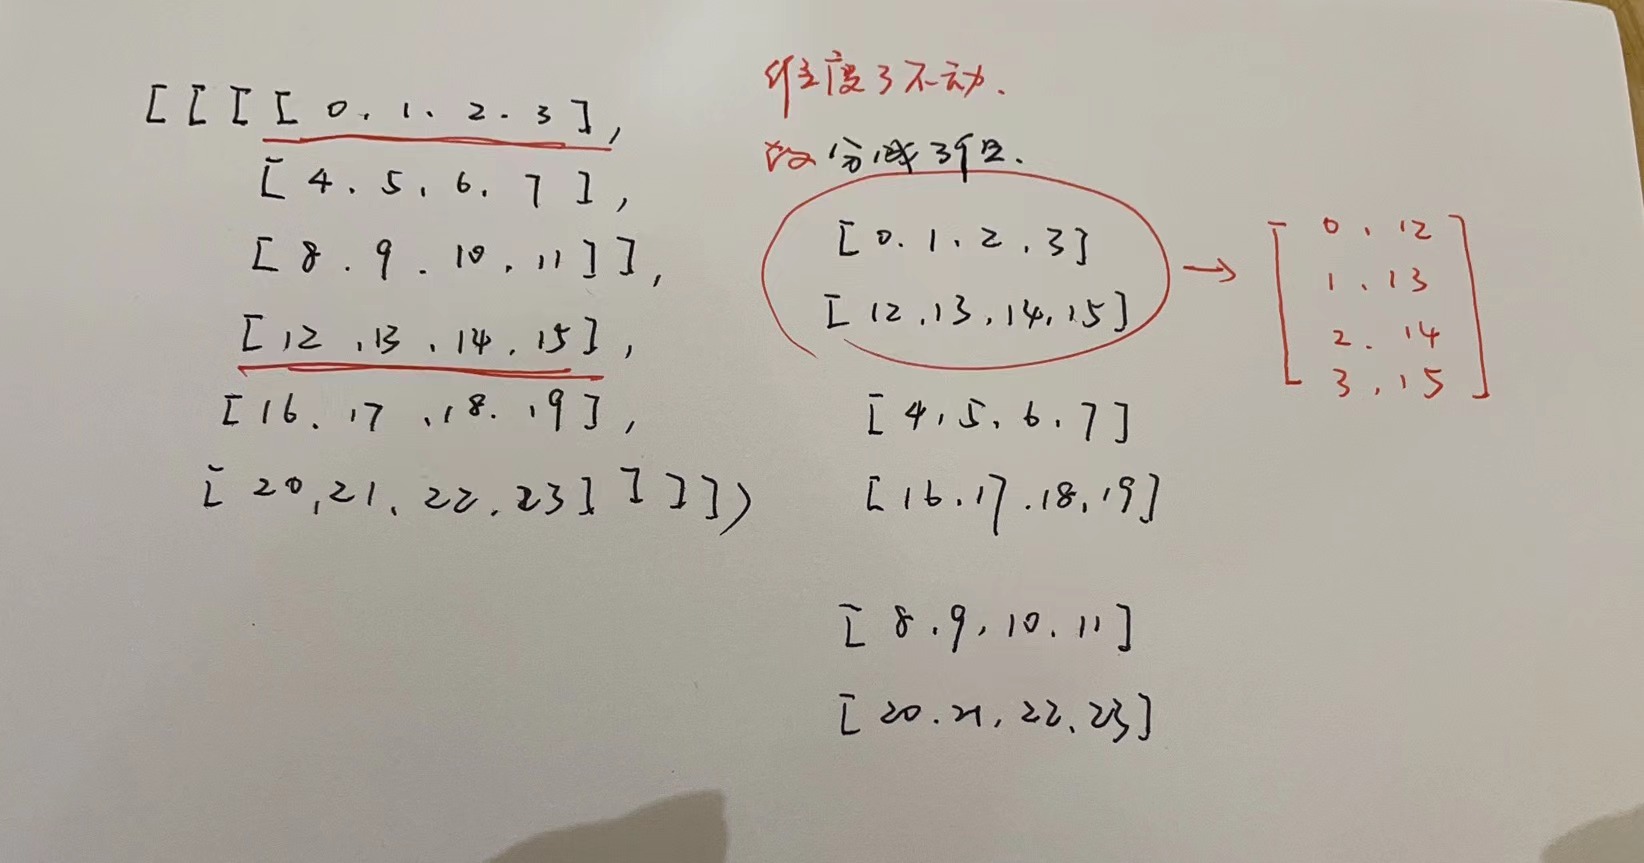 [[[[0.1.2.3],
[4.5.6.7],
[8.9.10.11]],
[12.13.14.15],
[16.17.18.19],
[20,21.22.23]]]])
维度3不动.
故分成3组.
[0.1.2.3]
[12.13.14.15]
[4.5.6.7]
[16.17.18.19]
[8.9.10.11]
[20.21.22.23]
→
0.12
1.13
2.14
3.15